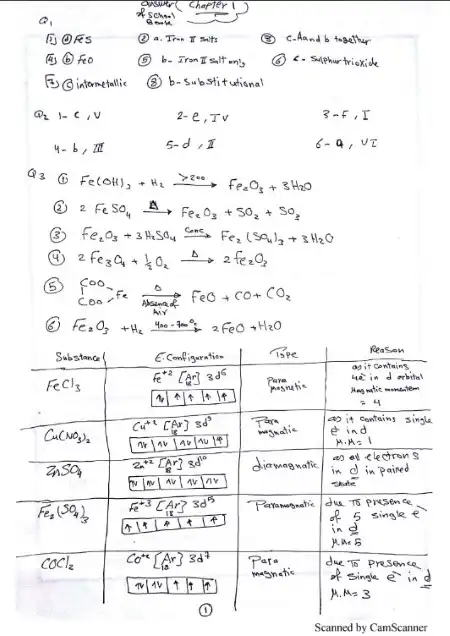 Answer Chapter 1
of School
Book
Q1
1 a FeS 2 a. Iron II Salts 3 c. A and b together
4 b FeO 5 b- Iron II Salt only 6 c- Sulphur trioxide
7 c intermetallic 8 b- Substitutional
Q2 1- c, V 2- e, IV 3- f, I
4- b, III 5- d, II 6- a, VI
Q3 1 Fe(OH)3 + H2 >200 → Fe2O3 + 3H2O
2 2 FeSO4 Δ → Fe2O3 + SO2 + SO3
3 Fe2O3 + 3H2SO4 Conc → Fe2(SO4)3 + 3H2O
4 2Fe3O4 + 1/2 O2 Δ → 3Fe2O3
5 COO
COO Fe Δ → FeO + CO + CO2
Absence of
Air
6 Fe2O3 + H2 400-700°C → 2FeO + H2O
Substance E.Configuration Type Reason
FeCl3 Fe+2 [Ar]18 3d6 Para magnetic as it contains 4e in d orbital Magnetic momentem = 4
Cu(NO3)2 Cu+2 [Ar]18 3d9 Para magnatic as it contains single e in d M.M = 1
ZnSO4 Zn+2 [Ar]18 3d10 diamagnatic as all electrons in d in paired state
Fe2(SO4)3 Fe+3 [Ar]18 3d5 Paramagnatic due To presence of 5 single e in d M.M=5
COCl2 Co+2 [Ar]18 3d7 Para magnetic due To presence of single e in d M.M = 3
1
Scanned by CamScanner